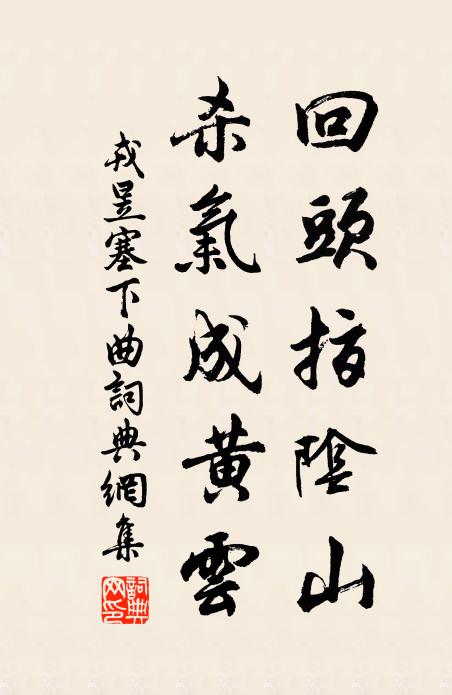 回頭指陰山
杀氣成黄雲
戎昱塞下曲詞典網集
詞典网印